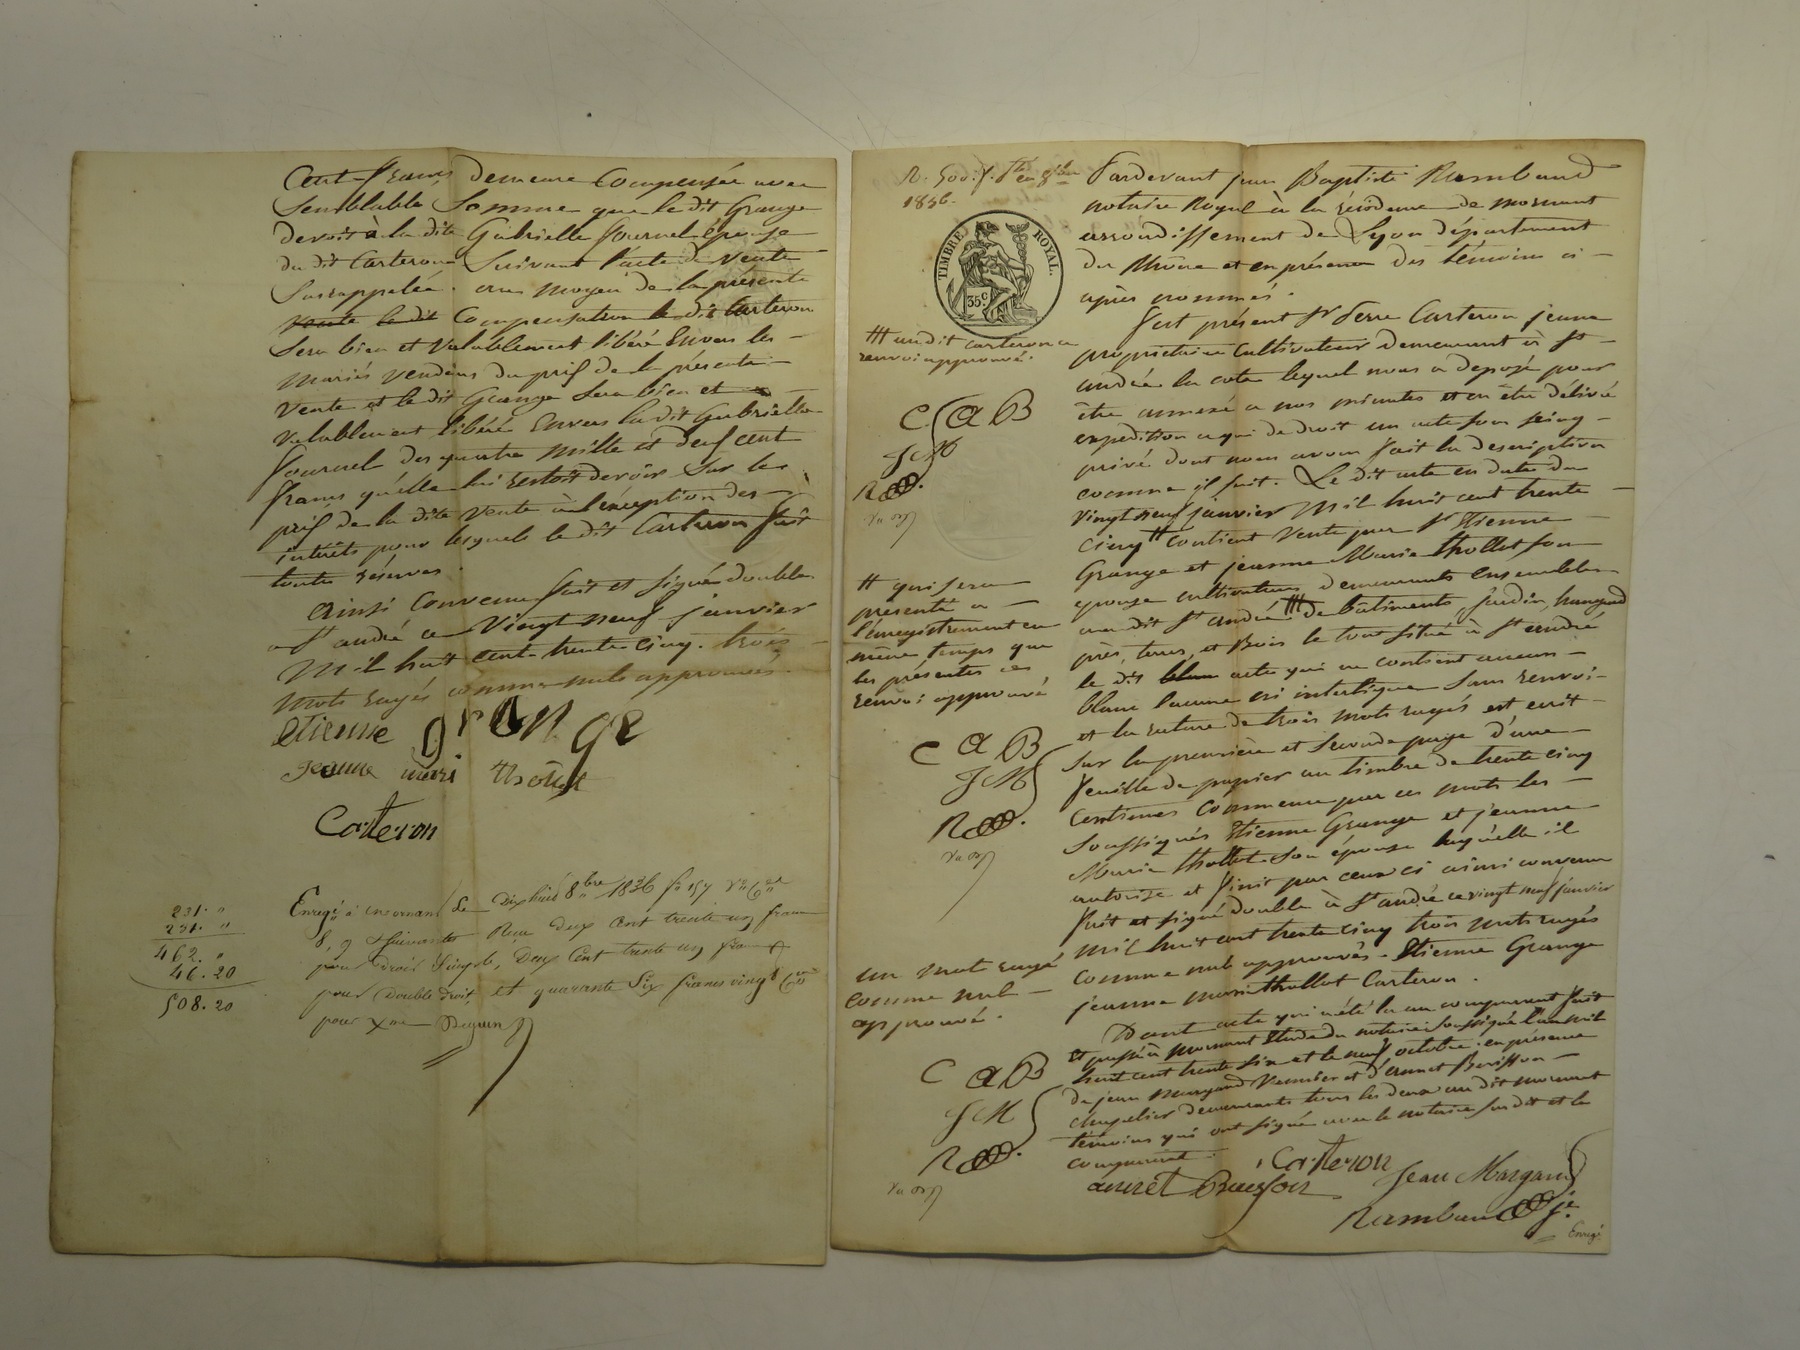 Cent francs demeure Compensée avec
Semblable Somme que le dit Grange
devoit à la dite Gabrielle fournel épouse
du dit Carteron Suivant l'acte de vente
Susrappelée. au moyen de la présente
vente le dit Compensation le dit Carteron
Sera bien et valablement libéré Envers les
mariés vendeurs du prif de la présente
vente et le dit Grange Sera bien et
valablement libéré Envers la dit Gabrielle
fournel des quatre mille et deuf cent
francs qu'elle lui restoit devoir Sur le
prif de la dite vente à l'éxception des
intérêts pour lesquels le dit Carteron fait
toutes réserves.
Ainsi Convenu fait et signé double
a St andré ce vingt neuf janvier
mil huit cent trente cinq. trois
mots rayés comme nuls approuvés.
etienne grange
jeanne mari thollot
Carteron
Enregé à mornant Le Dix huit 8bre 1836 fo 157 Vo Cet
8, 9 & suivantes Reçu deux Cent trente un francs
pour droit Simple, Deux Cent trente un francs
pour double droit, et quarante Six francs vingt Cmes
pour Xme
231. "
231. "
462. "
46.20
508.20
1836.
TIMBRE ROYAL.
35 c.
au dit carteron
renvoi approuvé.
C A B
J M
R
# qui sera
présenté a
l'enregistrement en
même temps que
les présentes
renvoi approuvé
C A B
J M
R
un mot rayé
comme nul
approuvé.
C A B
J M
R
Pardevant jean Baptiste Rambaud
notaire Royal à la résidence de mornant
arrondissement de Lyon département
du Rhône et en présence des témoins ci-
après nommés.
fut présent Sr Carteron jeune
propriétaire Cultivateur demeurant à St
andré la cote lequel nous a deposé pour
être annexé a nos minutes et en être délivré
expedition a qui de droit un acte sous seing
privé dont nous avons fait la description
comme il suit. Le dit acte en date du
vingt neuf janvier mil huit cent trente
cinq # contient vente par Sr Etienne
Grange et jeanne Marie thollot son
epouse cultivateurs demeurants ensemble
au dit St andré # de bâtiments, jardin, hangard
près, terres, et Bois le tout situé à St andré
le dit acte qui ne contient aucun
blanc lacune ni interligne Sans renvoi
et la rature de trois mots rayés est ecrit
sur la première et seconde page d'une
feuille de papier au timbre de trente cinq
centimes Commence par ces mots les
soussignés Etienne Grange et jeanne
Marie thollot son épouse laquelle il
autorise et finit par ceux ci ainsi convenu
fait et signé double à St andré ce vingt neuf janvier
mil huit cent trente cinq trois mots rayés
comme nuls approuvés. Etienne Grange
jeanne marie thollot Carteron.
Dont acte qui a été lu au comparant fait
et passé à mornant Etude du notaire soussigné l'an mil
huit cent trente six et le neuf octobre en présence
de jean margand et d'
chapelier demeurants tous les deux au dit mornant
témoins qui ont signé avec le notaire susdit et le
comparant.
Carteron
Jean Margand
Rambaud
Enregé